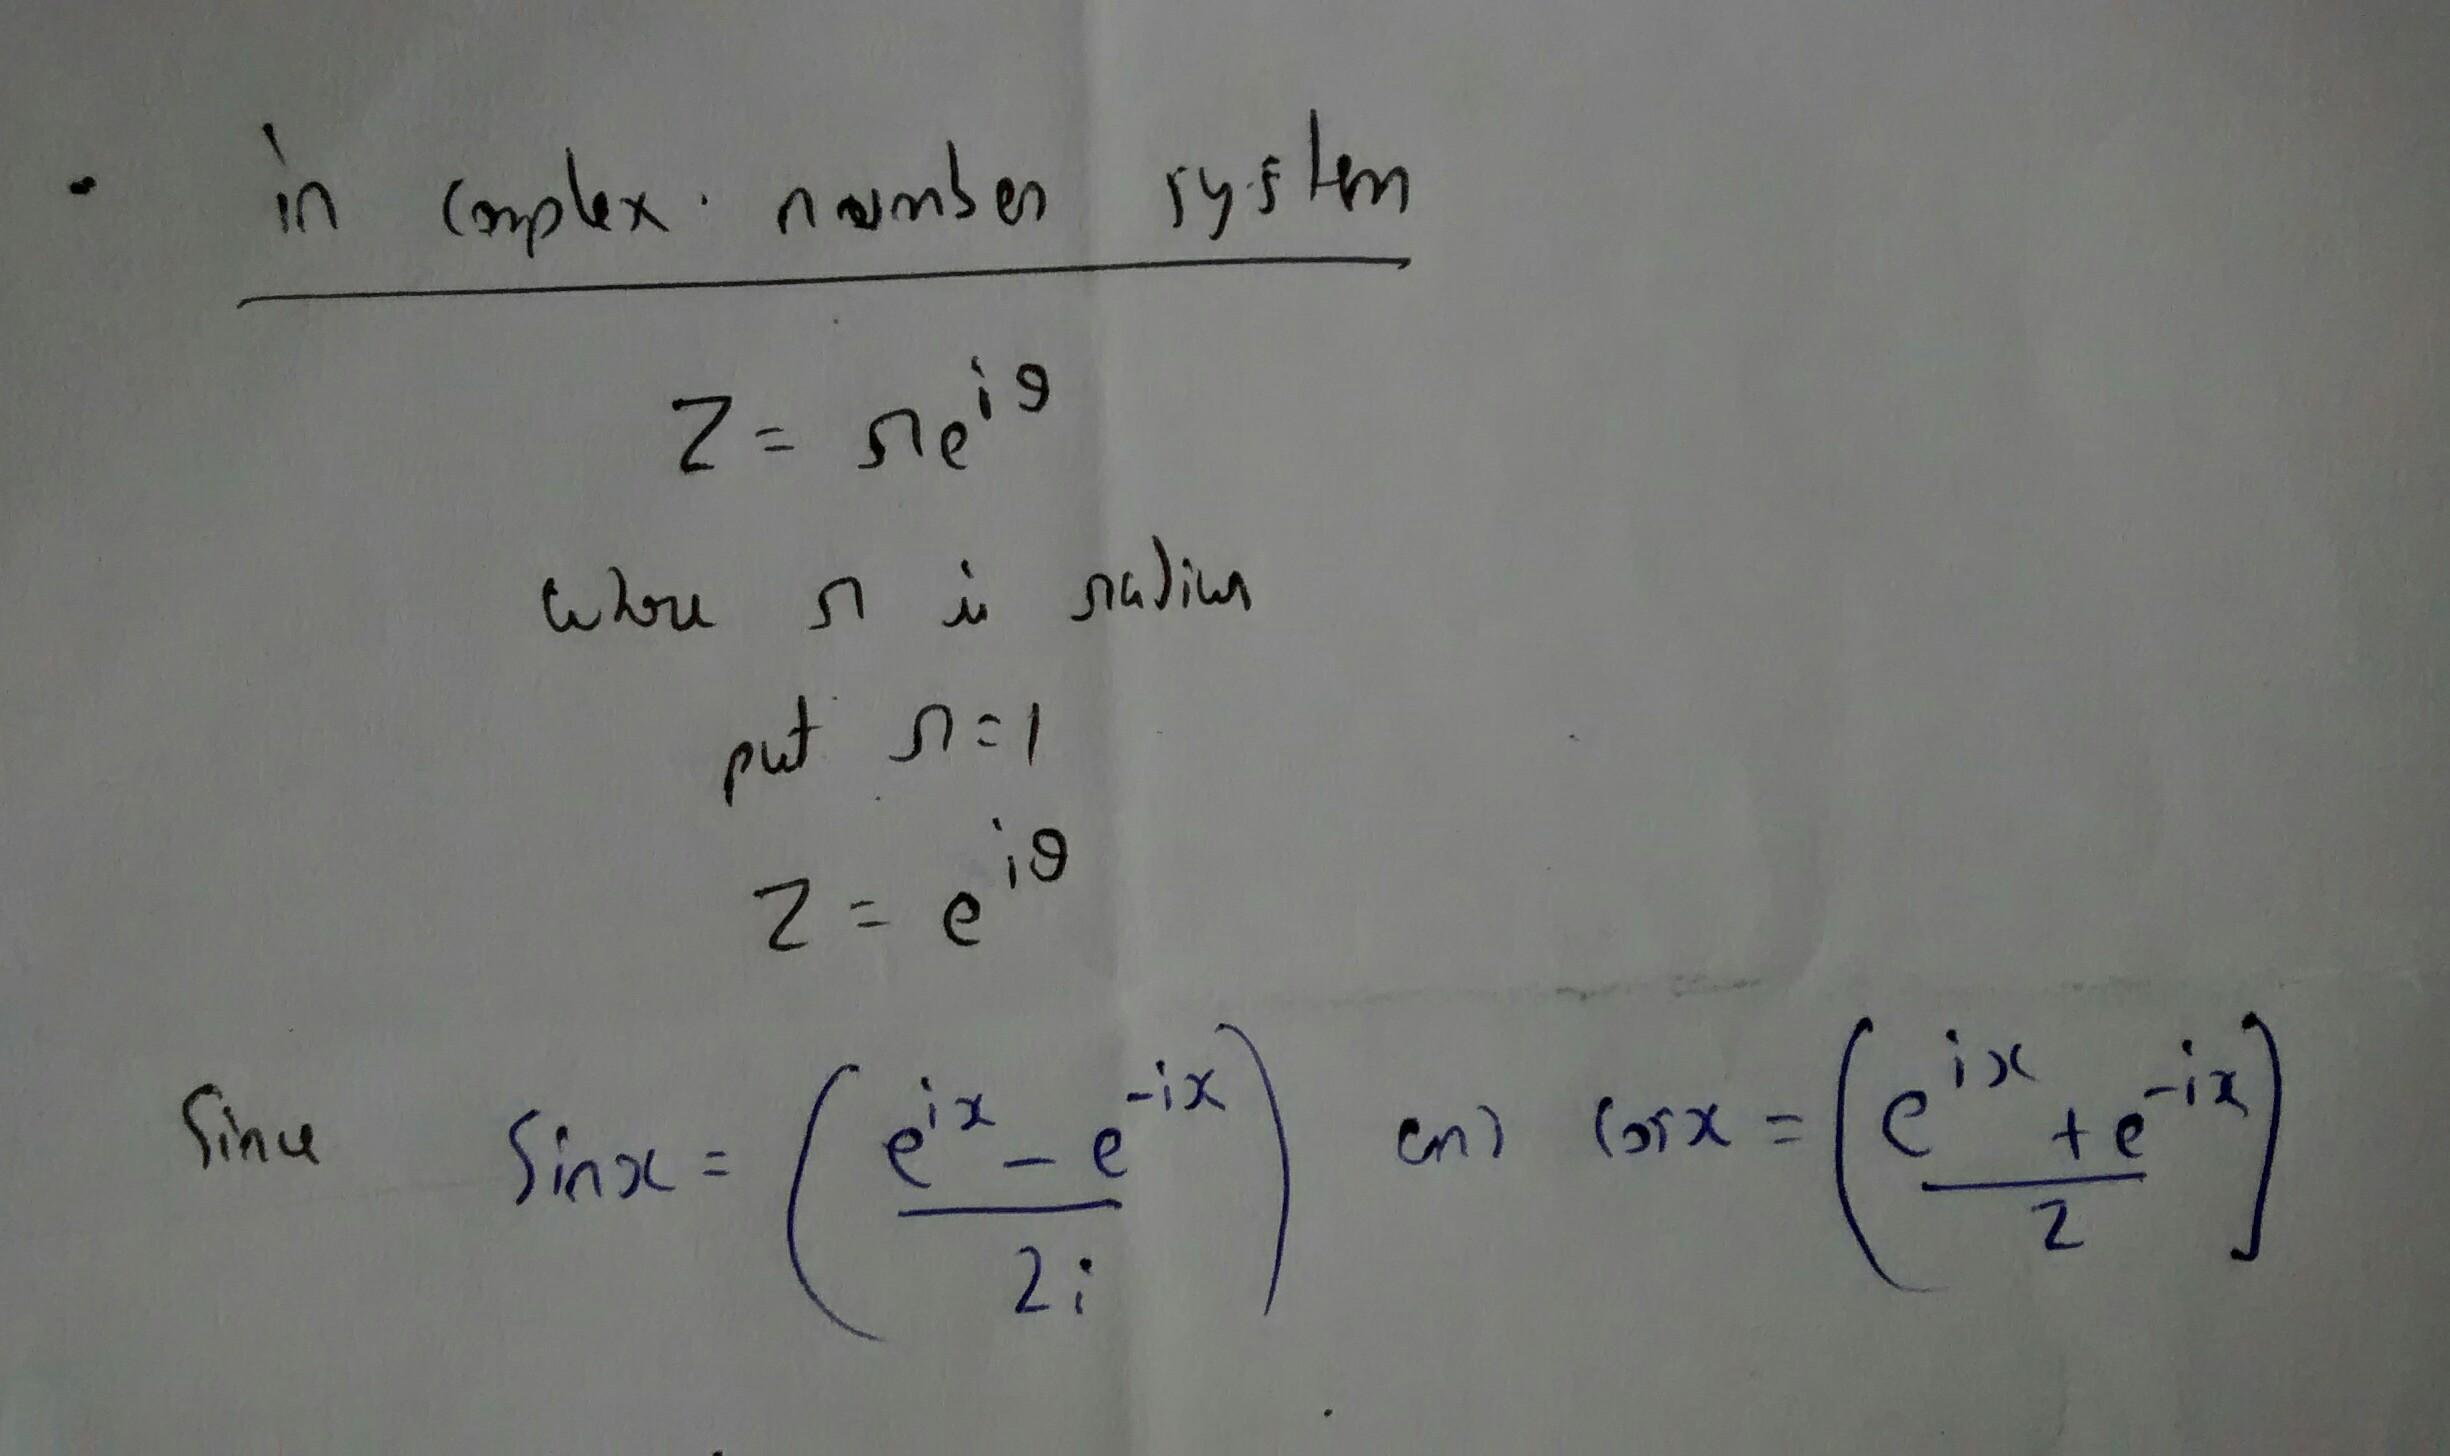 in complex number system
Z = re^{iθ}
where r is radius
put r=1
Z = e^{iθ}
Since Sinx = \left( \frac{e^{ix} - e^{-ix}}{2i} \right) and cosx = \left( \frac{e^{ix} + e^{-ix}}{2} \right]